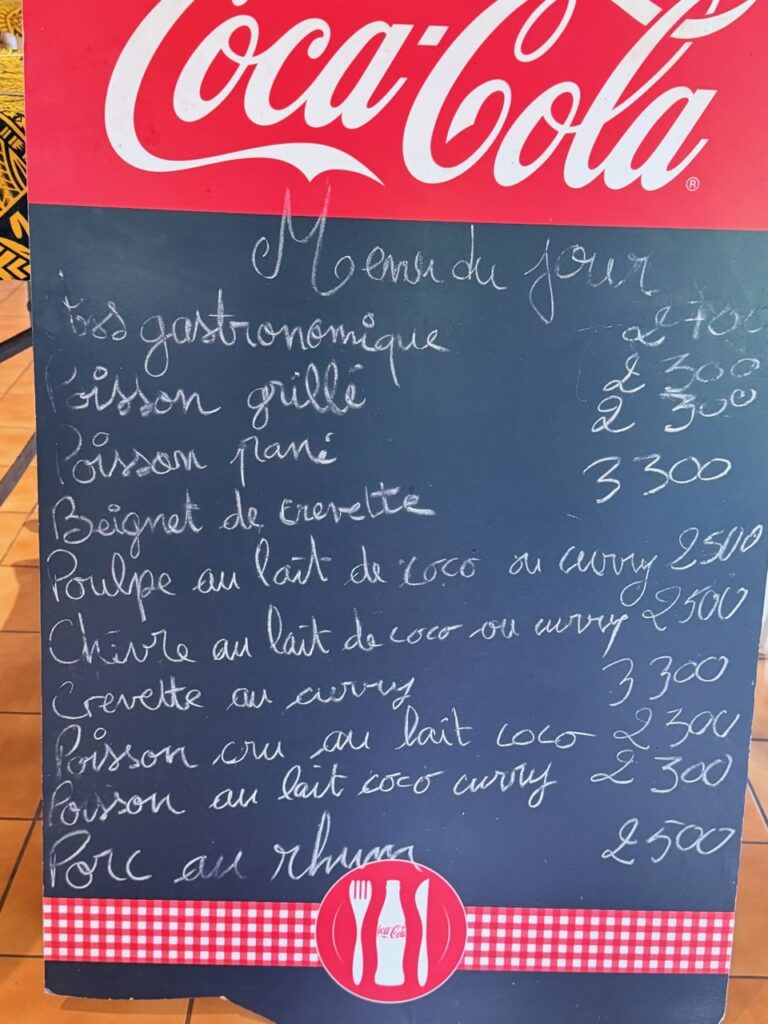 Coca-Cola ®
Menu du jour
gastronomique 2700
Poisson grillé 2300
Poisson pané 2300
Beignet de crevette 3300
Poulpe au lait de coco ou curry 2500
Chèvre au lait de coco ou curry 2500
Crevette au curry 3300
Poisson cru au lait coco 2300
Poisson au lait coco curry 2300
Porc au rhum 2500
Coca-Cola